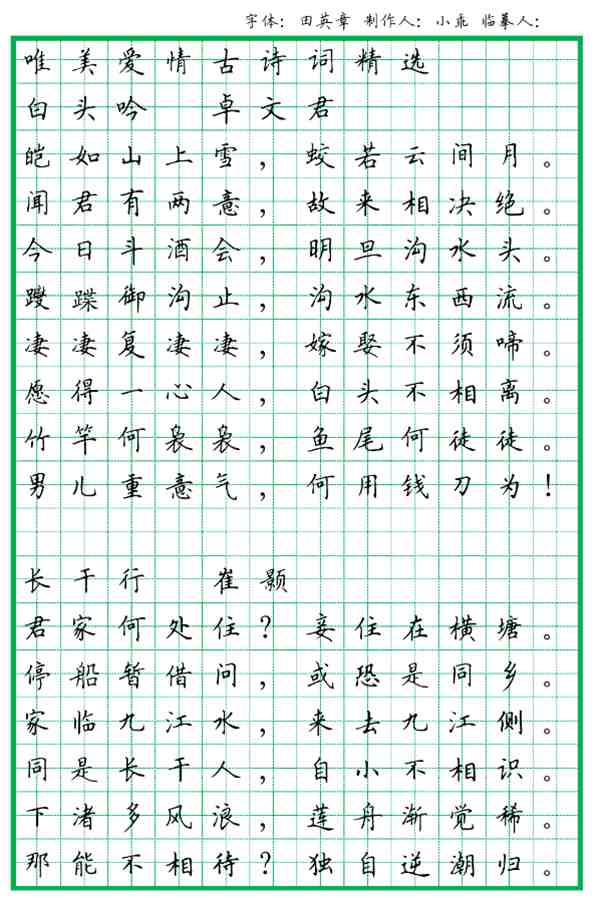 字体：田英章 制作人：小乖 临摹人：
唯美爱情古诗词精选
白头吟 卓文君
皑如山上雪，蛟若云间月。
闻君有两意，故来相决绝。
今日斗酒会，明旦沟水头。
躞蹀御沟止，沟水东西流。
凄凄复凄凄，嫁娶不须啼。
愿得一心人，白头不相离。
竹竿何袅袅，鱼尾何徒徒。
男儿重意气，何用钱刀为！
长干行 崔颢
君家何处住？妾住在横塘。
停船暂借问，或恐是同乡。
家临九江水，来去九江侧。
同是长干人，自小不相识。
下渚多风浪，莲舟渐觉稀。
那能不相待？独自逆潮归。